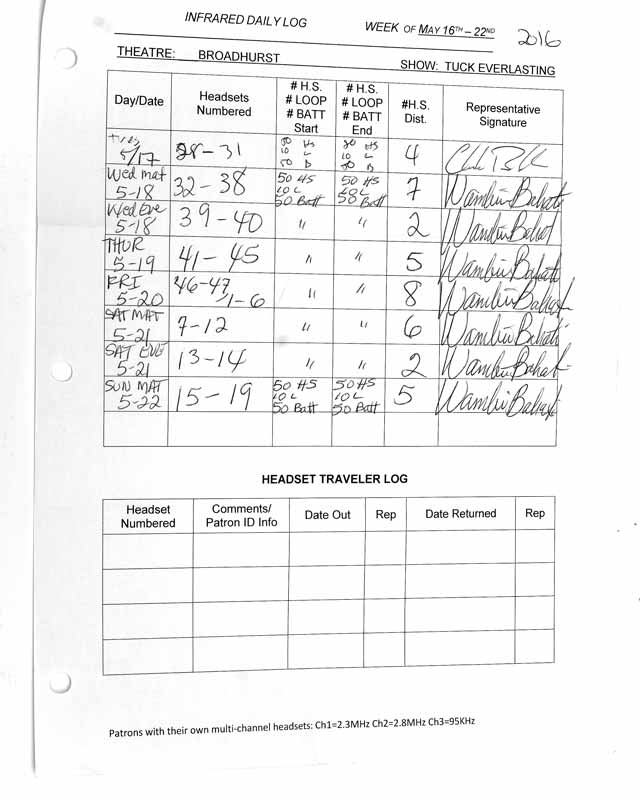 INFRARED DAILY LOG
WEEK OF MAY 16TH – 22ND
2016
THEATRE: BROADHURST
SHOW: TUCK EVERLASTING
Day/Date
Headsets Numbered
# H.S. # LOOP # BATT Start
# H.S. # LOOP # BATT End
#H.S. Dist.
Representative Signature
5/17 28-31 50 HS 10 L 50 B 50 HS 10 L 50 B 4
Wed mat 5-18 32-38 50 HS 10 L 50 Batt 50 HS 10 L 50 Batt 7 Wambui Bahati
Wed Eve 5-18 39-40 " " 2 Wambui Bahati
THUR 5-19 41-45 " " 5 Wambui Bahati
FRI 5-20 46-47, 1-6 " " 8 Wambui Bahati
SAT MAT 5-21 7-12 " " 6 Wambui Bahati
SAT EVE 5-21 13-14 " " 2 Wambui Bahati
SUN MAT 5-22 15-19 50 HS 10 L 50 Batt 50 HS 10 L 50 Batt 5 Wambui Bahati
HEADSET TRAVELER LOG
Headset Numbered
Comments/ Patron ID Info
Date Out
Rep
Date Returned
Rep
Patrons with their own multi-channel headsets: Ch1=2.3MHz Ch2=2.8MHz Ch3=95KHz